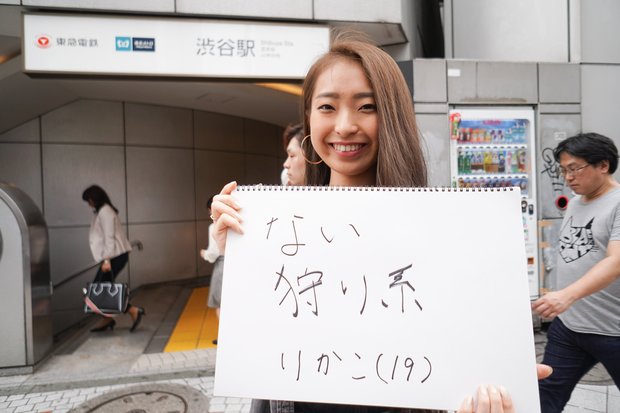 東急電鉄
渋谷駅
Shibuya Sta.
ない
狩り系
りかこ(19)